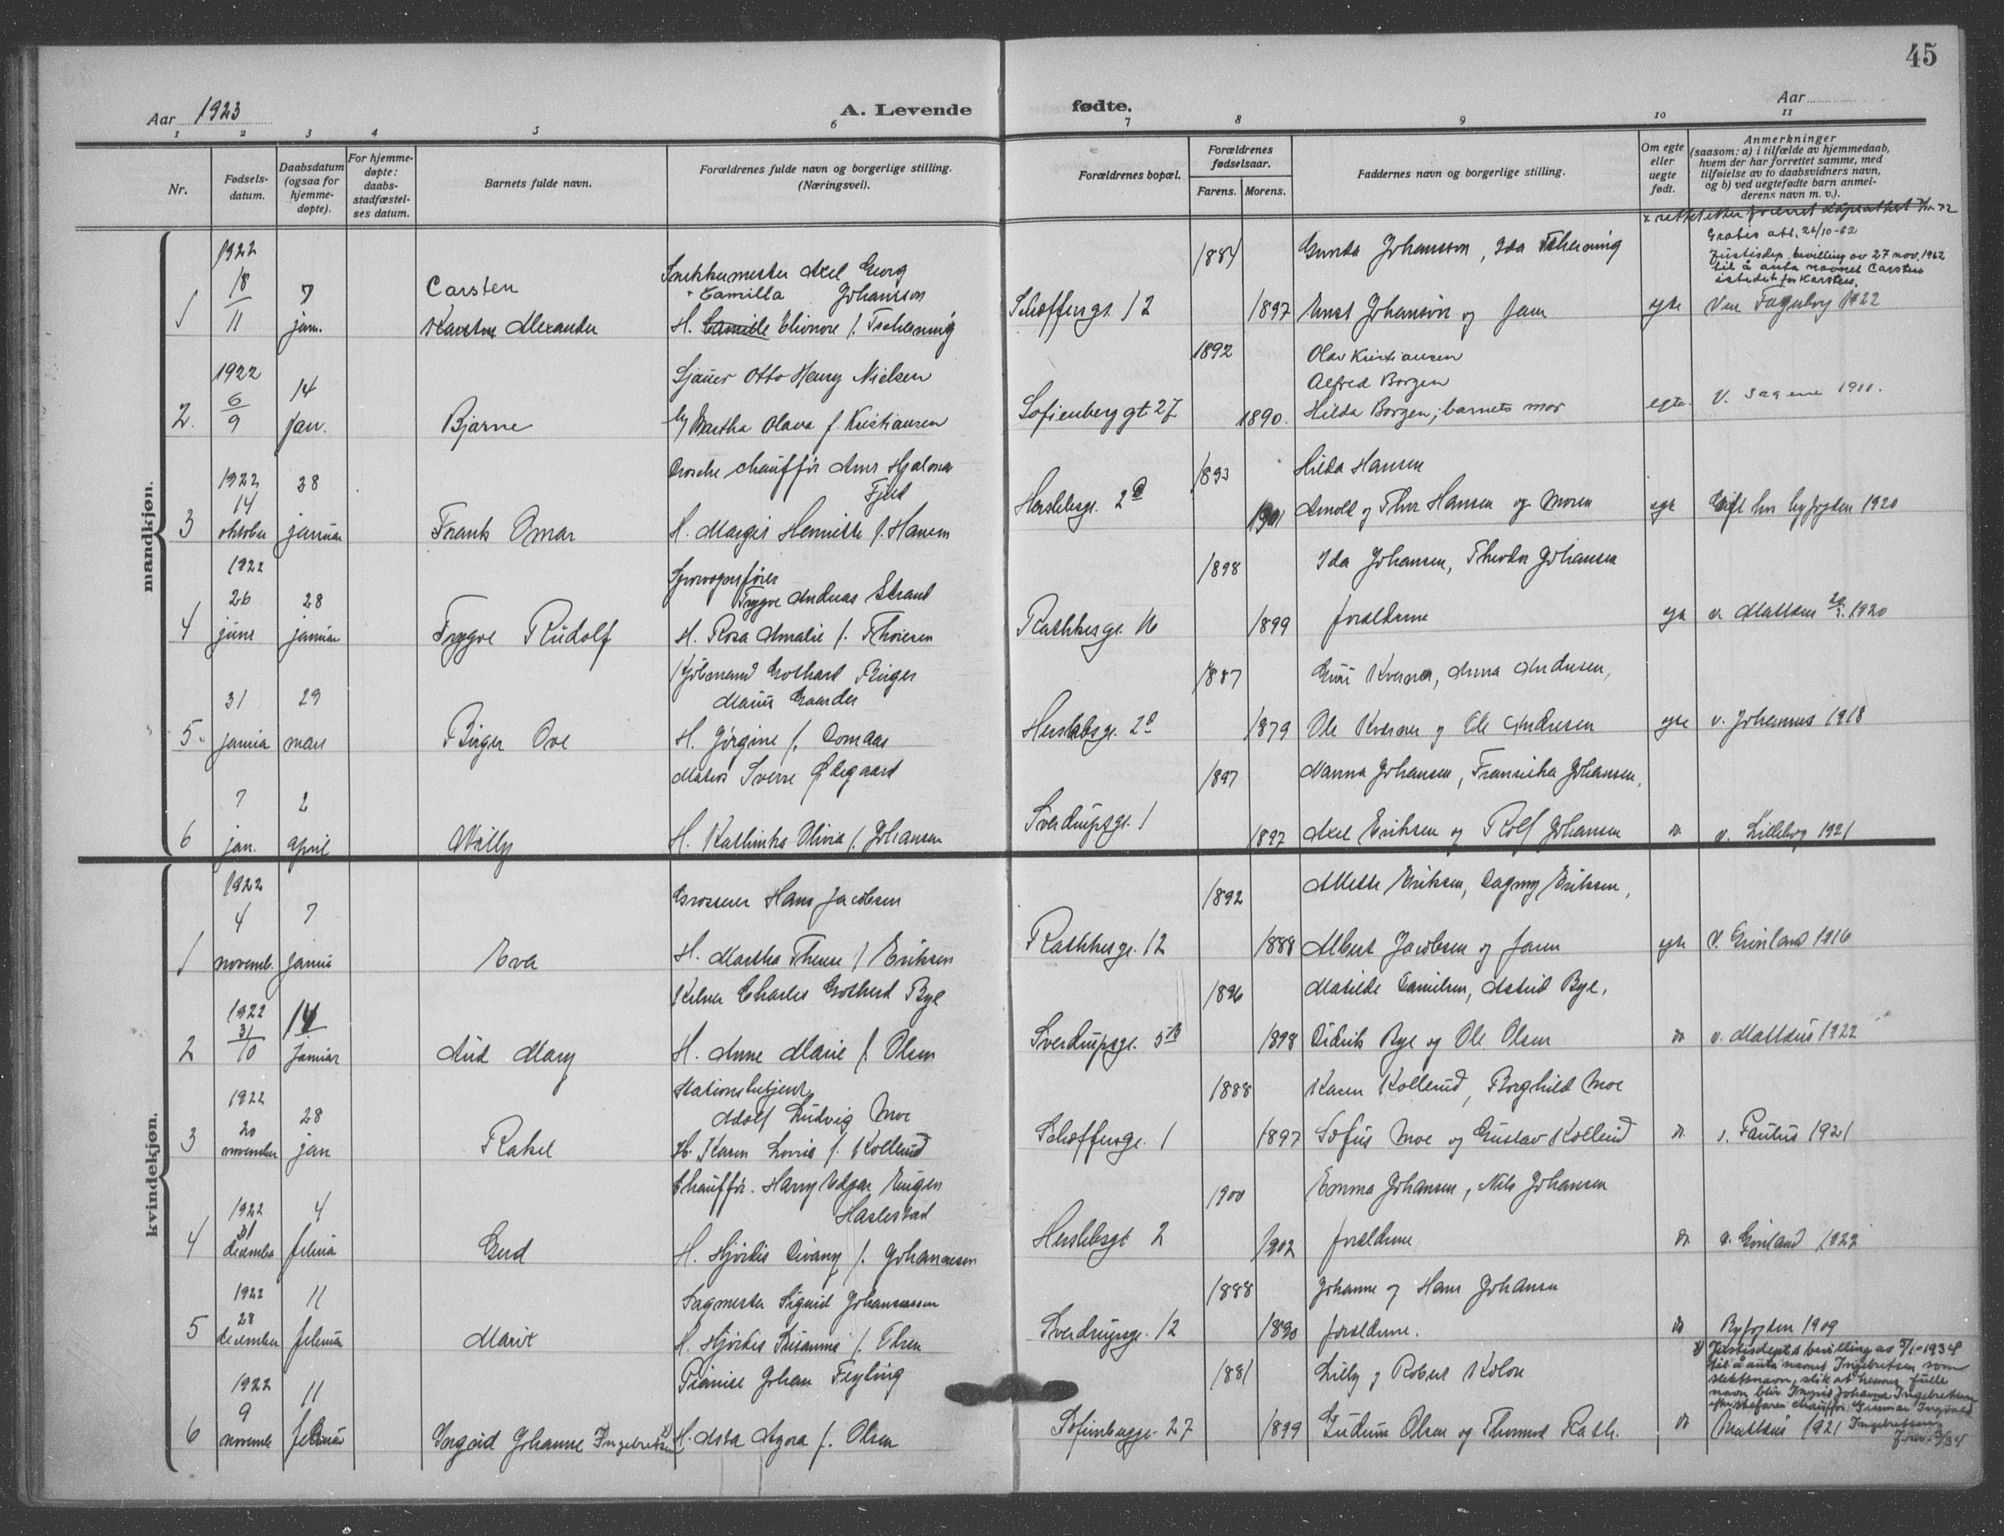 45
Aar 1923
A. Levende fødte.
Aar
1 2 3 4 5 6 7 8 9 10 11
Nr.
Fødsels-
datum.
Daabsdatum
(ogsaa for
hjemme-
døpte).
For hjemme-
døpte:
daabs-
stadfæstel-
ses datum.
Barnets fulde navn.
Forældrenes fulde navn og borgerlige stilling.
(Næringsvei).
Forældrenes bopæl.
Forældrenes
fødselsaar.
Farens. Morens.
Faddernes navn og borgerlige stilling.
Om egte
eller
uegte
født.
Anmerkninger
(saasom: a) i tilfælde av hjemmedaab,
hvem der har forrettet samme, med
tilføielse av to daabsvidners navn,
og b) ved uegtefødte barn anmel-
derens navn m. v.).
maandkjøn.
Gratis att. 26/10-62
Justisdep. bevilling av 27 nov. 1962
til å anta navnet Carsten
istedet for Karsten.
1922
18
11
1
7
jan.
Carsten
Karsten Alexander
Snekkermester Axel Georg
+ Camilla Johansson
H. Camilla Elionore f. Tscherning
Schæffersgt. 12
1884
1897
Gunda Johansson, Ida Tscherning
Ernst Johansson og faren
egte
Vor Fagerborg 1922
1922
6
9
2.
14
jan.
Bjarne
Sjauer Otto Henry Nielsen
og Martha Olava f. Kristiansen
Sofienberggt 27
1892
1890.
Olav Kristiansen
Alfred Borgen
Hilda Borgen; barnets mor
egte.
V. Sagene 1911.
1922
14
oktober
3
28
januar
Frank Omar
Drosche chauffør Arnr Hjalmar
Fjeld
H. Margit Henriette f. Hansen
Herslebsgt. 2
1893
1901
Hilda Hansen
Arnold og Thor Hansen og moren
egte
Gift hos byfogden 1920
1922
26
juni
4
28
januar
Trygve Rudolf
Sporvognsfører
Trygve Andreas Strand
H. Rosa Amalie f. Thoresen
Rathkesgt. 16
1898
1899
Ida Johansen, Theodor Johansen
forældrene
egte
v. Mattæus 1920
31
januar
5.
29
mars
Birger Ove
Kjøbmand Gothard Birger
Maur Gaarder
H. Jørgine f. Domaas
Herslebsgt. 2
1887
1879
Guri Kverner, Anna Andresen,
Ole Kverner og Ole Andresen
egte
v. Johannes 1918
7
jan.
6
2
april
Willy
Matros Sverre Ødegaard
H. Kathinka Olivia f. Johansen
Sverdrupsgt. 1
1897
1897
Nanna Johansen, Fransiska Johansen,
Axel Eriksen og Rolf Johansen
do.
v. Lilleborg 1921
kvindekjøn.
1922
4
novemb.
1
7
januar
Eva
Grosserer Hans Jacobsen
H. Martha Therese f. Eriksen
Rathkesgt. 12
1892
1888
Mette Eriksen, Dagny Eriksen,
Albert Jacobsen og faren
egte
V. Grønland 1916
1922
31
10
2
14
januar
Aud Mary
Kelner Charles Gothard Bye
H. Anne Marie f. Olsen
Sverdrupsgt. 5B
1896
1898
Matilde Danielsen, Astrid Bye,
Didrik Bye og Ole Olsen
do.
v. Mattæus 1922
1922
20
november
3
28
jan
Rakel
Stationsbetjent
Adolf Ludvig Moe
H. Karen Lovise f. Kollerud
Schæffersgt. 1
1888
1897
Karen Kollerud, Borghild Moe
Sofus Moe og Gustav Kollerud
do.
v. Paulus 1921
1922
31
december
4
4
februar
Gerd
Chauffør. Harry Edgar Eugen
Haslestad
H. Hjørdis Divany f. Johannesen
Herslebsgt 2
1900
1902
Emma Johansen, Nils Johansen
forældrene
do.
v. Grønland 1922
1922
28
december
5
11
februar
Marit
Sagmester Sigurd Johannessen
H. Hjørdis Susanna f. Olsen
Sverdrupsgt. 12
1888
1890
Johanne og Hans Johansen
forældrene.
do.
Byfogden 1909
1922
9
novemb
6
11
februar
Ingrid Johanne Ingebretsen x)
Pianist Johan Feyling
H. Asta Agora f. Olsen
Sofienberggt. 27
1881
1899
Lilly og Robert Kolon
Gudrun Olsen og Thomas Rath.
do.
Mattæus 1921
x) Justisdeptes bevilling av 5/1-1934
til å anta navnet Ingebretsen som
slektsnavn, slik at hennes fulle
navn blir Ingrid Johanne Ingebretsen
efter stefaren chauffør Gunnar Ingvald
Ingebretsen